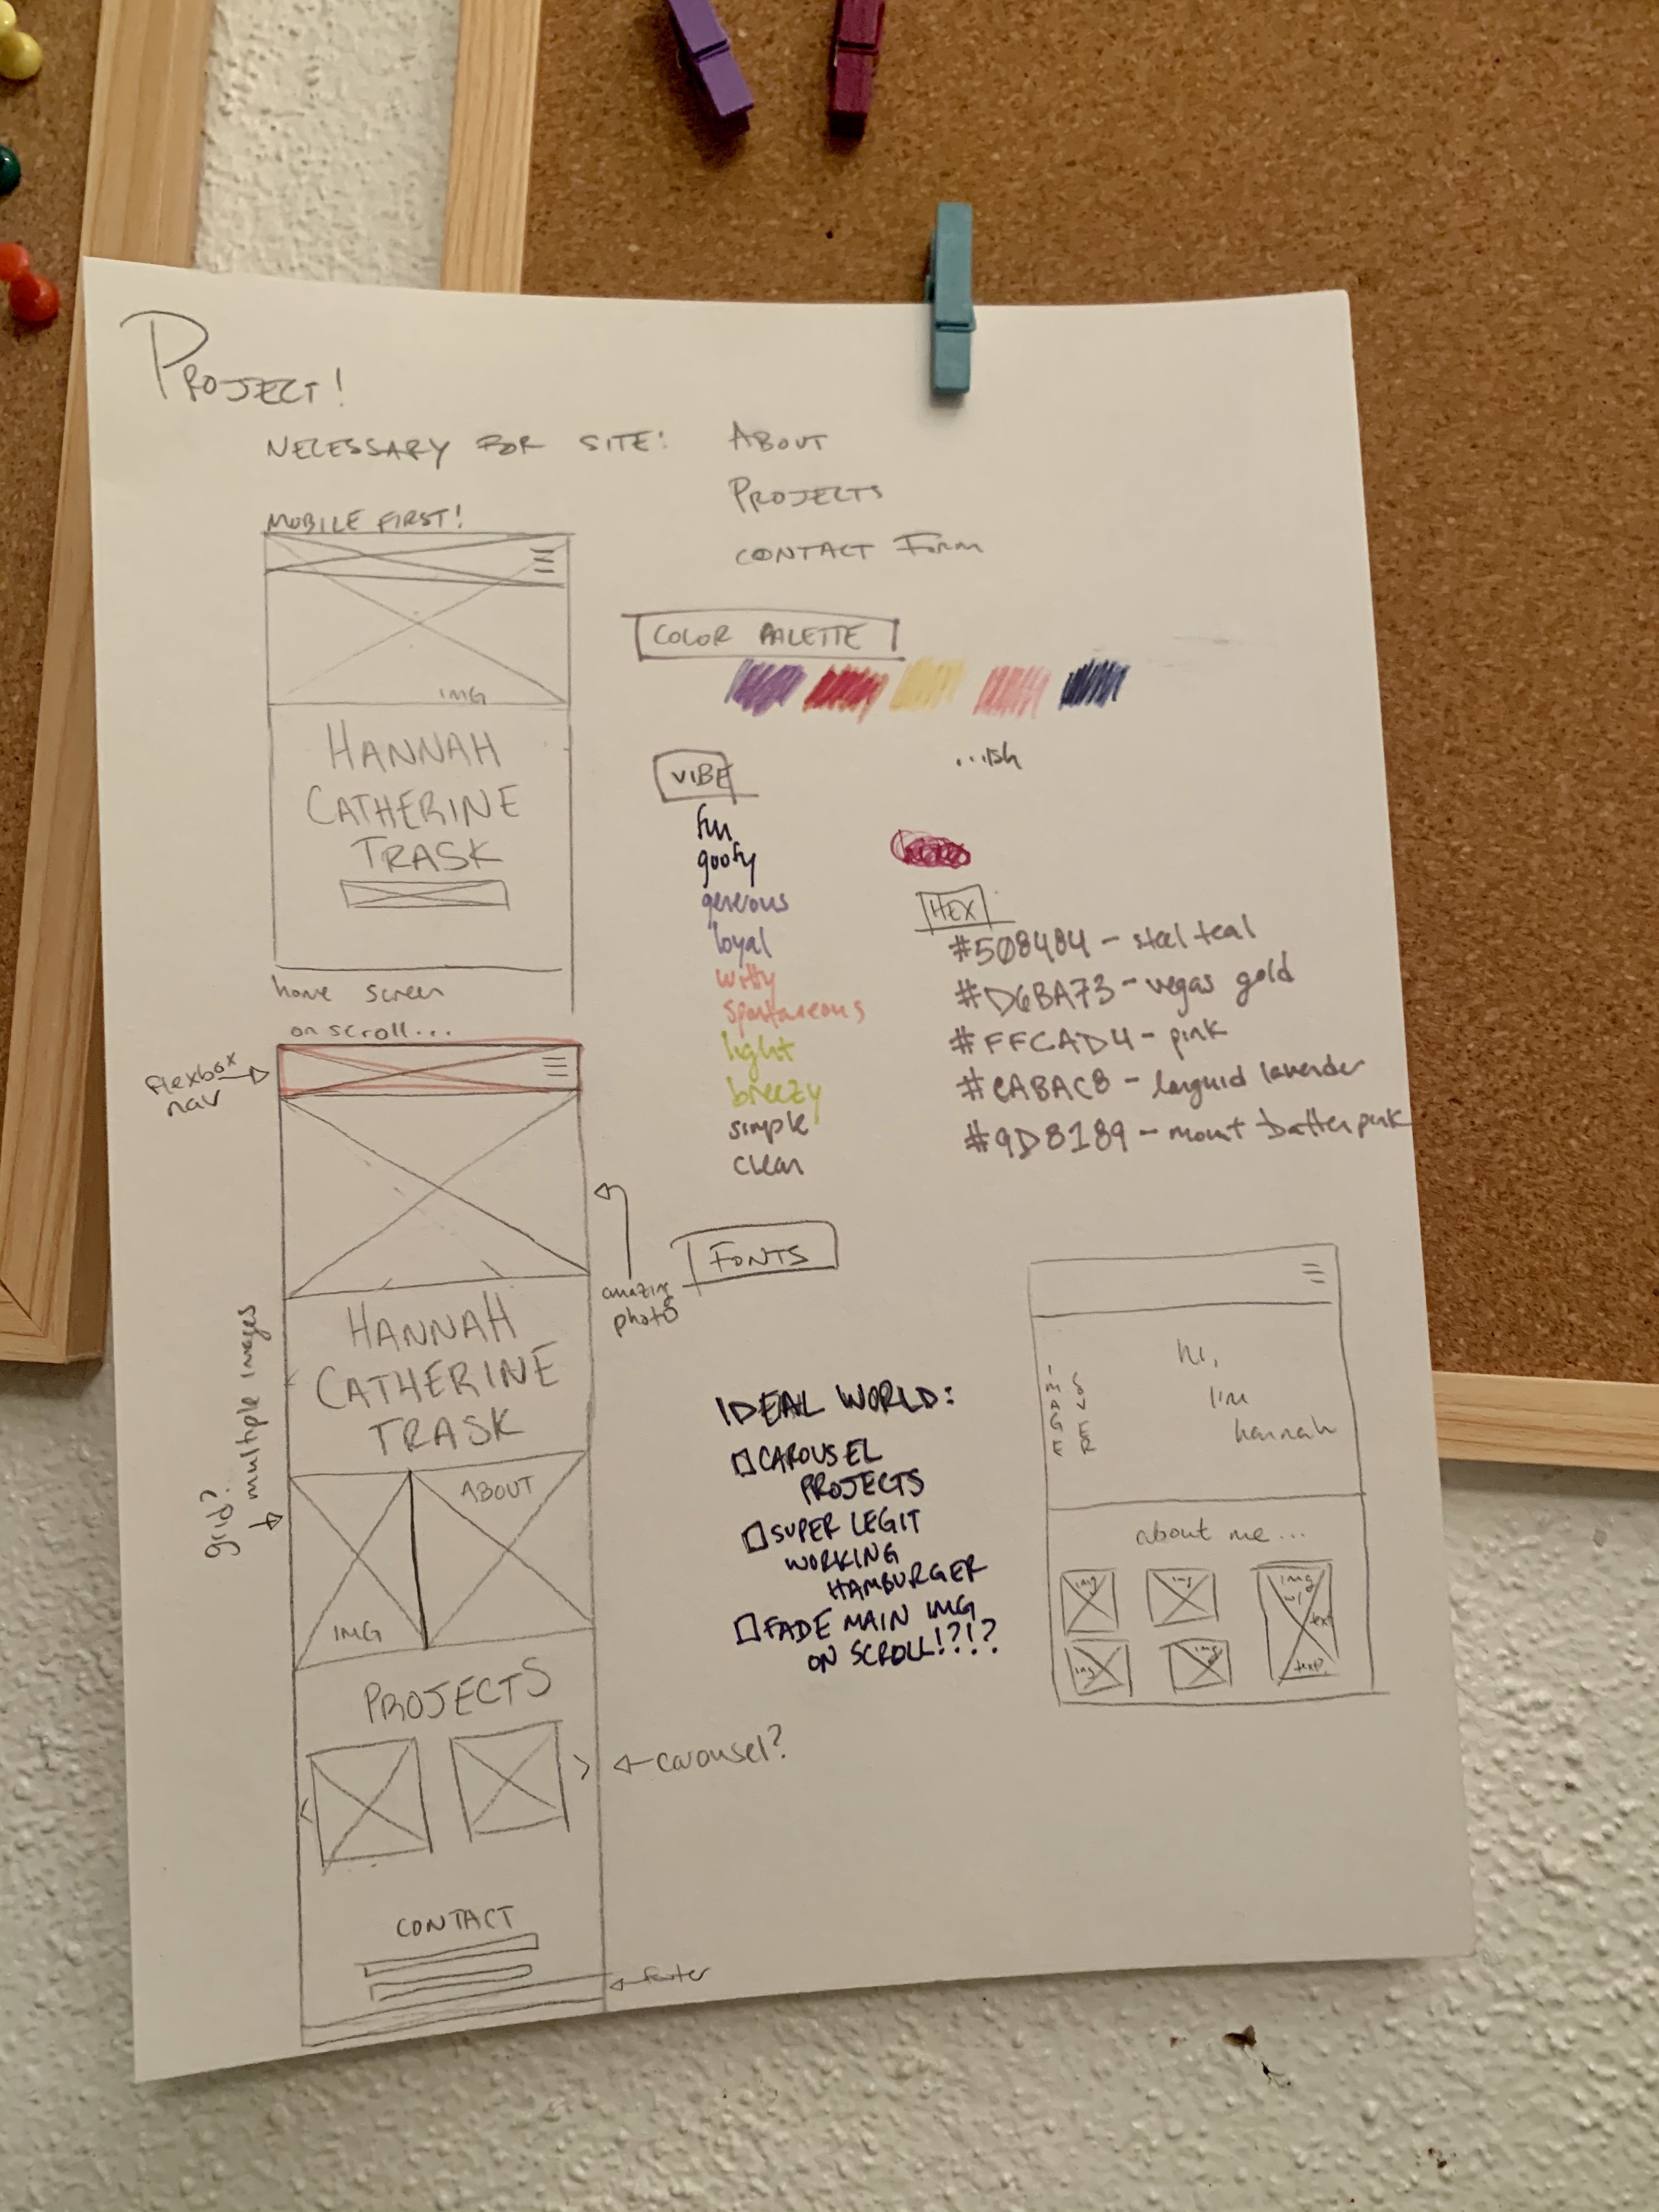 PROJECT!
NECESSARY FOR SITE:
ABOUT
PROJECTS
CONTACT FORM
MOBILE FIRST!
IMG
HANNAH
CATHERINE
TRASK
home screen
COLOR PALETTE
...ish
VIBE
fun
goofy
generous
loyal
witty
spontaneous
light
breezy
simple
clean
HEX
#508484 - steel teal
#D6BA73 - vegas gold
#FFCAD4 - pink
#CABAC8 - languid lavender
#9D8189 - mount batten pink
on scroll...
flexbox
nav
amazing
photo
HANNAH
CATHERINE
TRASK
grid?
multiple images
ABOUT
IMG
PROJECTS
carousel?
CONTACT
footer
FONTS
IDEAL WORLD:
CAROUSEL
PROJECTS
SUPER LEGIT
WORKING
HAMBURGER
FADE MAIN IMG
ON SCROLL!?!?
IMAGE
OVER
hi,
I'm
hannah
about me...
img
img
img
w/
text
img
img
text?